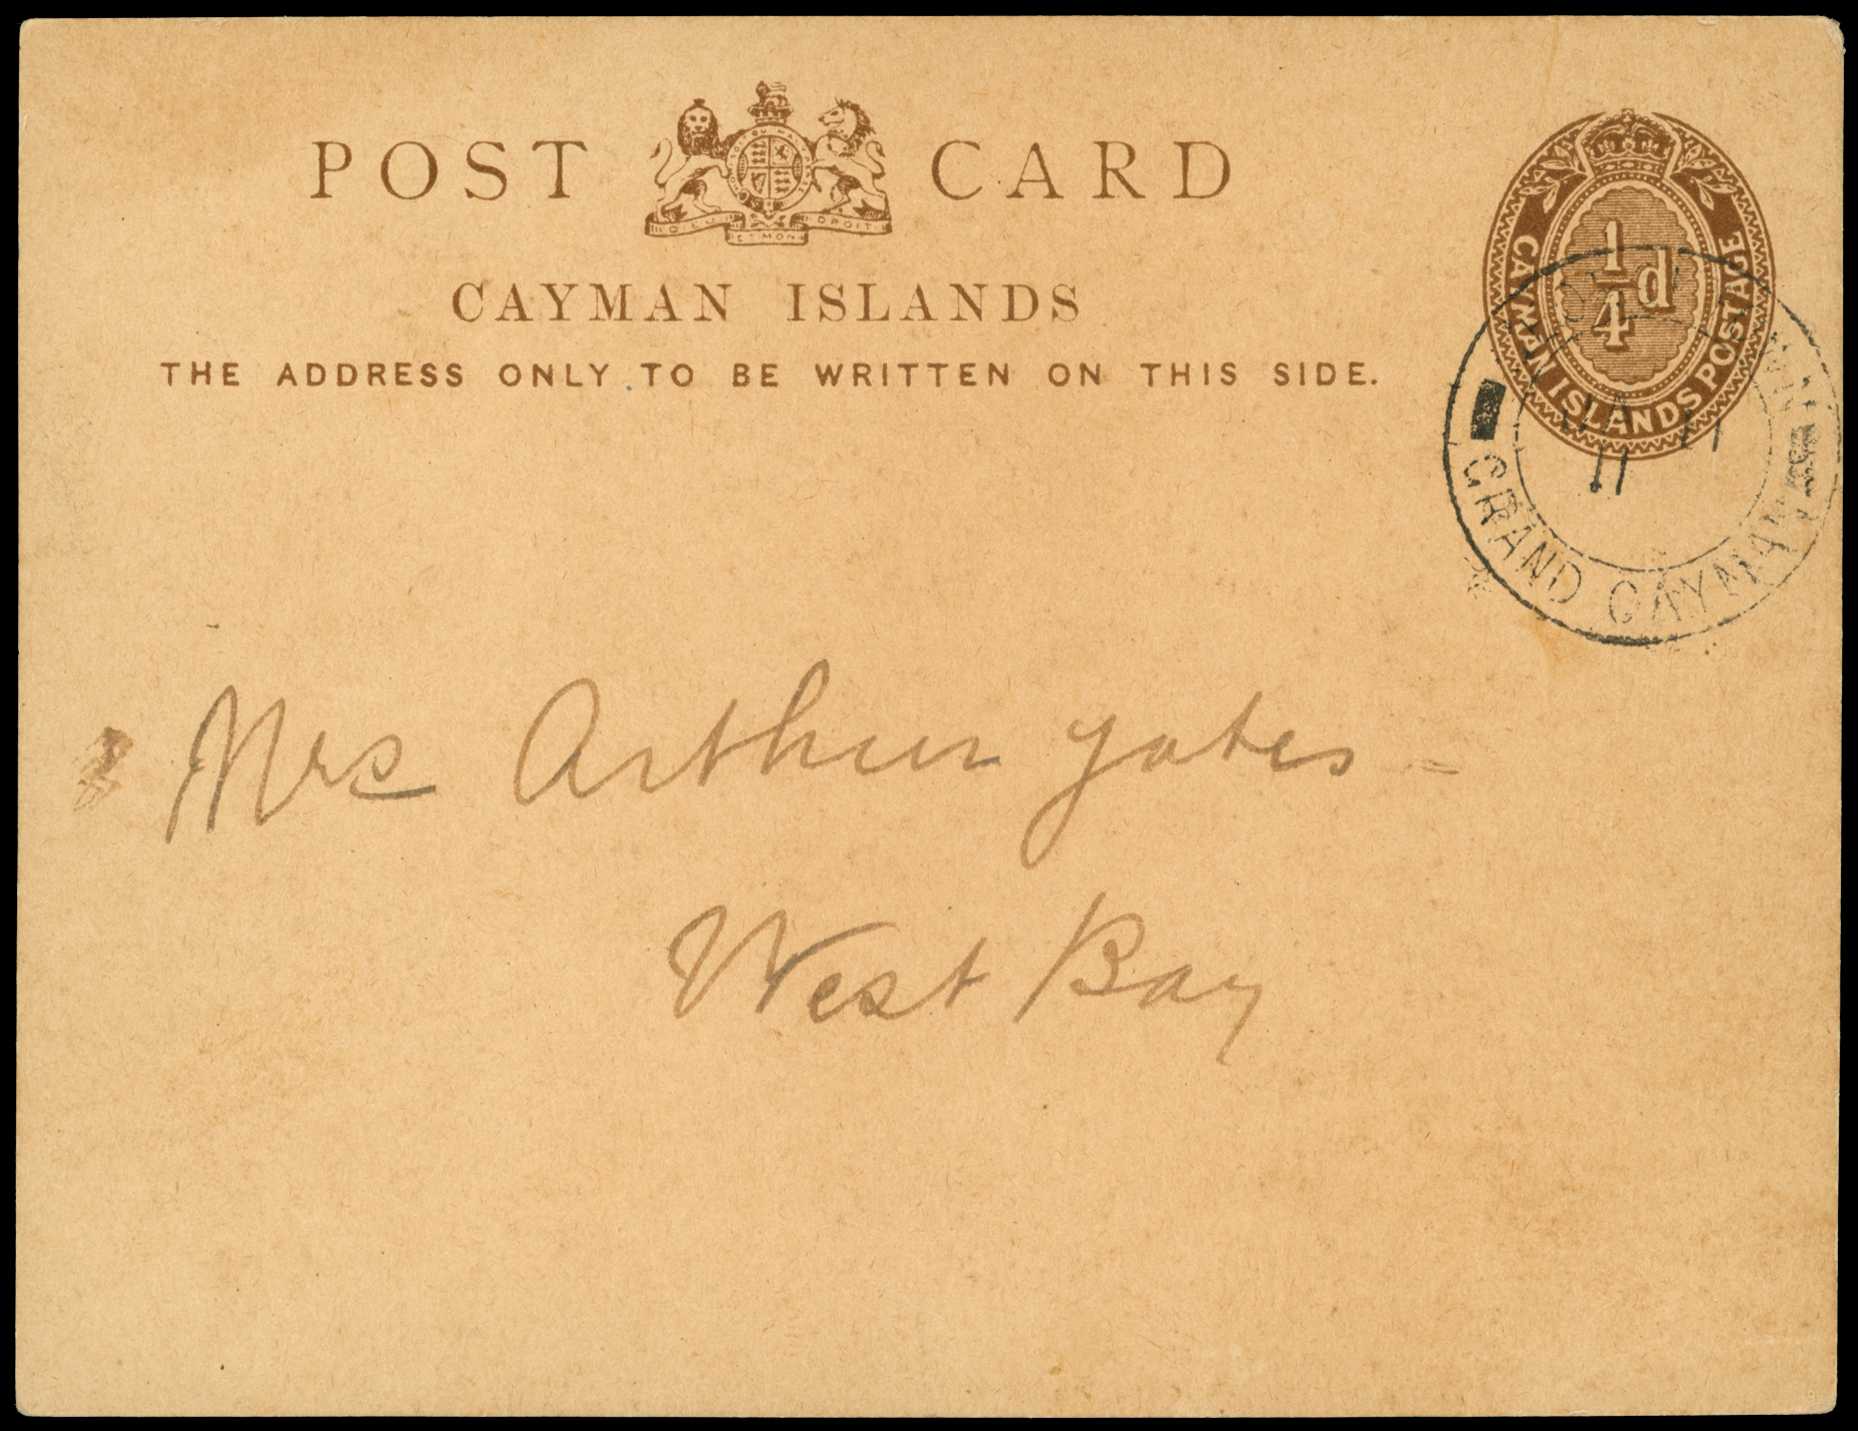 POST CARD
DIEU ET MON DROIT
CAYMAN ISLANDS
THE ADDRESS ONLY TO BE WRITTEN ON THIS SIDE.
1/4d
CAYMAN ISLANDS POSTAGE
11
GRAND CAYMAN
Mrs Arthur Yates
West Bay